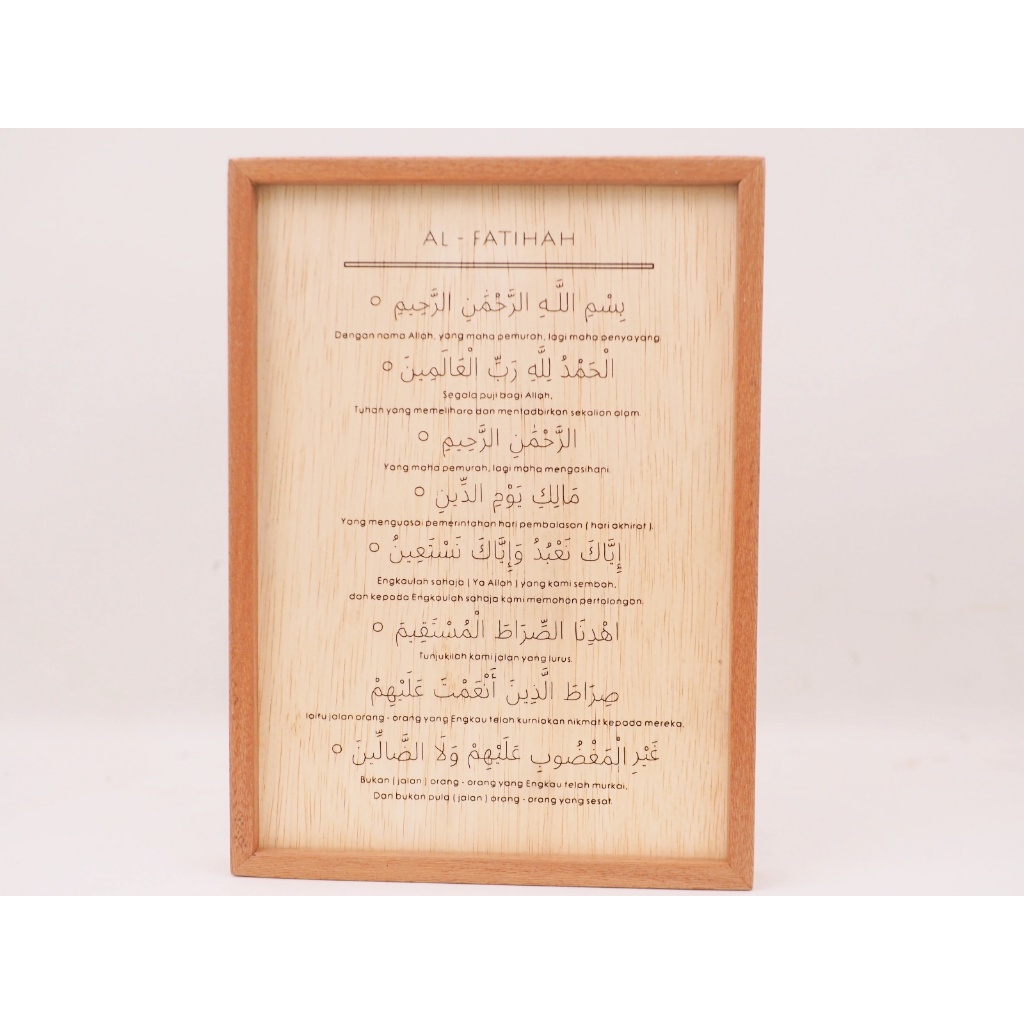 AL - FATIHAH
بِسْمِ اللَّـهِ الرَّحْمَٰنِ الرَّحِيمِ ○
Dengan nama Allah, yang maha pemurah, lagi maha penyayang.
الْحَمْدُ لِلَّهِ رَبِّ الْعَالَمِينَ ○
Segala puji bagi Allah,
Tuhan yang memelihara dan mentadbirkan sekalian alam.
الرَّحْمَٰنِ الرَّحِيمِ ○
Yang maha pemurah, lagi maha mengasihani.
مَالِكِ يَوْمِ الدِّينِ ○
Yang menguasai pemerintahan hari pembalasan ( hari akhirat ).
إِيَّاكَ نَعْبُدُ وَإِيَّاكَ نَسْتَعِينُ ○
Engkaulah sahaja ( Ya Allah ) yang kami sembah,
dan kepada Engkaulah sahaja kami memohon pertolongan.
اهْدِنَا الصِّرَاطَ الْمُسْتَقِيمَ ○
Tunjukilah kami jalan yang lurus.
صِرَاطَ الَّذِينَ أَنْعَمْتَ عَلَيْهِمْ
Iaitu jalan orang - orang yang Engkau telah kurniakan nikmat kepada mereka,
غَيْرِ الْمَغْضُوبِ عَلَيْهِمْ وَلَا الضَّالِّينَ ○
Bukan ( jalan ) orang - orang yang Engkau telah murkai,
Dan bukan pula ( jalan ) orang - orang yang sesat.